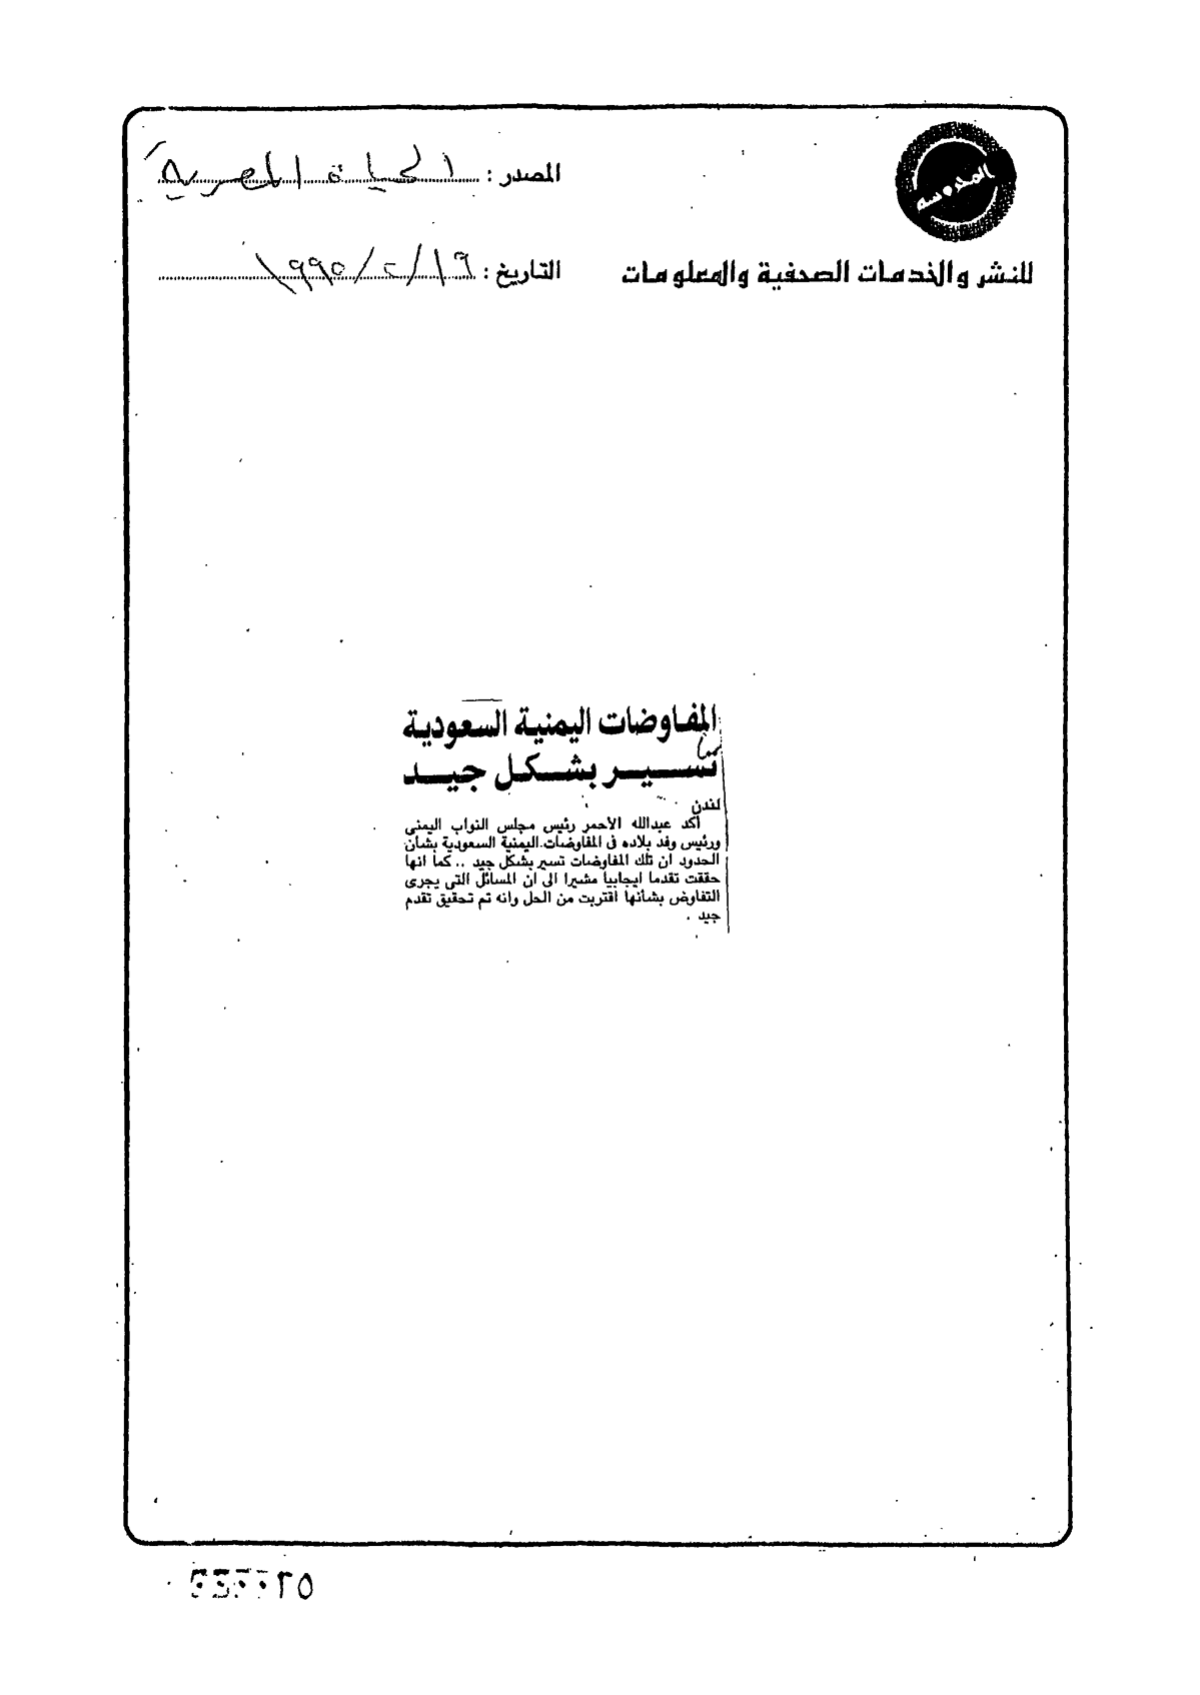 المحروسة
للنشر والخدمات الصحفية والمعلومات
المصدر : الحياة المصرية
التاريخ : ١٩/٢/١٩٩٥
المفاوضات اليمنية السعودية
تسير بشكل جيد
لندن
أكد عبدالله الأحمر رئيس مجلس النواب اليمنى
ورئيس وفد بلاده فى المفاوضات اليمنية السعودية بشأن
الحدود ان تلك المفاوضات تسير بشكل جيد .. كما انها
حققت تقدما ايجابيا مشيرا الى ان المسائل التى يجرى
التفاوض بشأنها اقتربت من الحل وانه تم تحقيق تقدم
جيد .